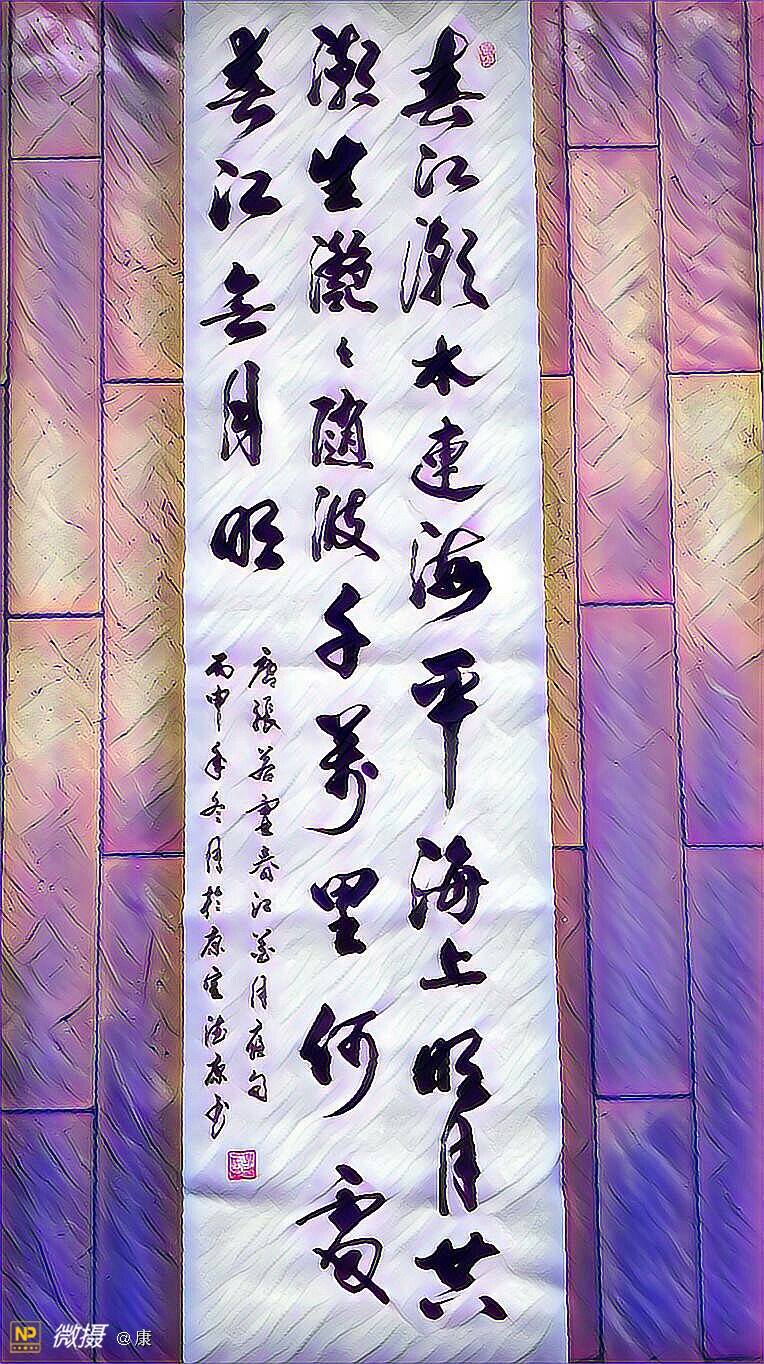 春江潮水連海平海上明月共
潮生灔〻隨波千萬里何處
春江無月明
唐張若虛春江花月夜句
丙申年冬月於康
NP 微摄 @康